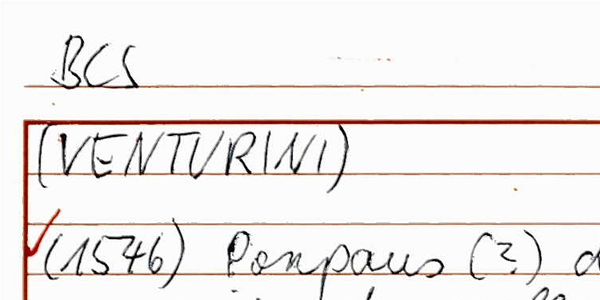 BCS
(VENTURINI)
(1546) Pompaus (?) d